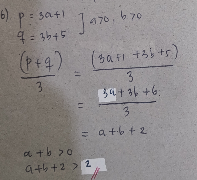 6) p = 3a+1 ] a>0, b>0
q = 3b+5
(p+q)/3 = (3a+1 +3b+5)/3
= 3a+3b+6/3
= a+b+2
a+b >0
a+b+2 > 2